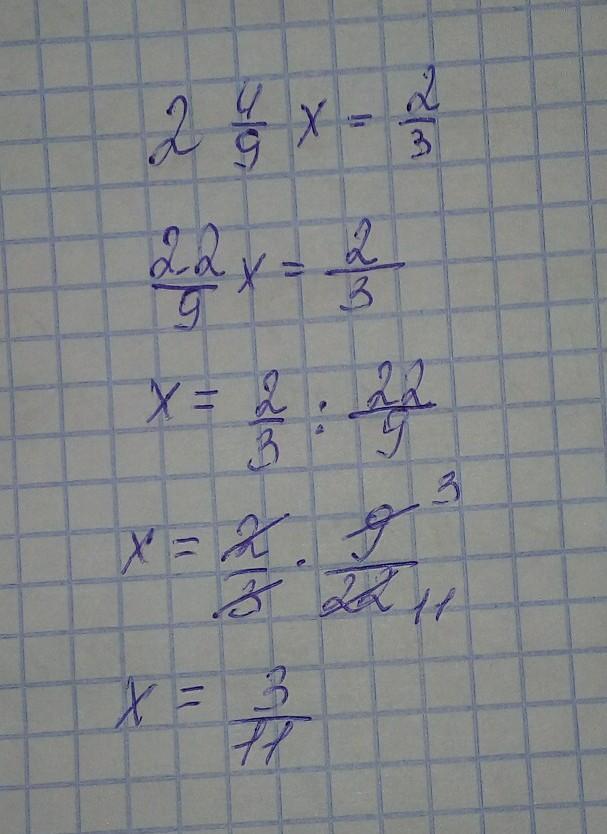 2 4/9 x = 2/3
22/9 x = 2/3
x = 2/3 : 22/9
x = 2/3 · 9/22 3 11
x = 3/11